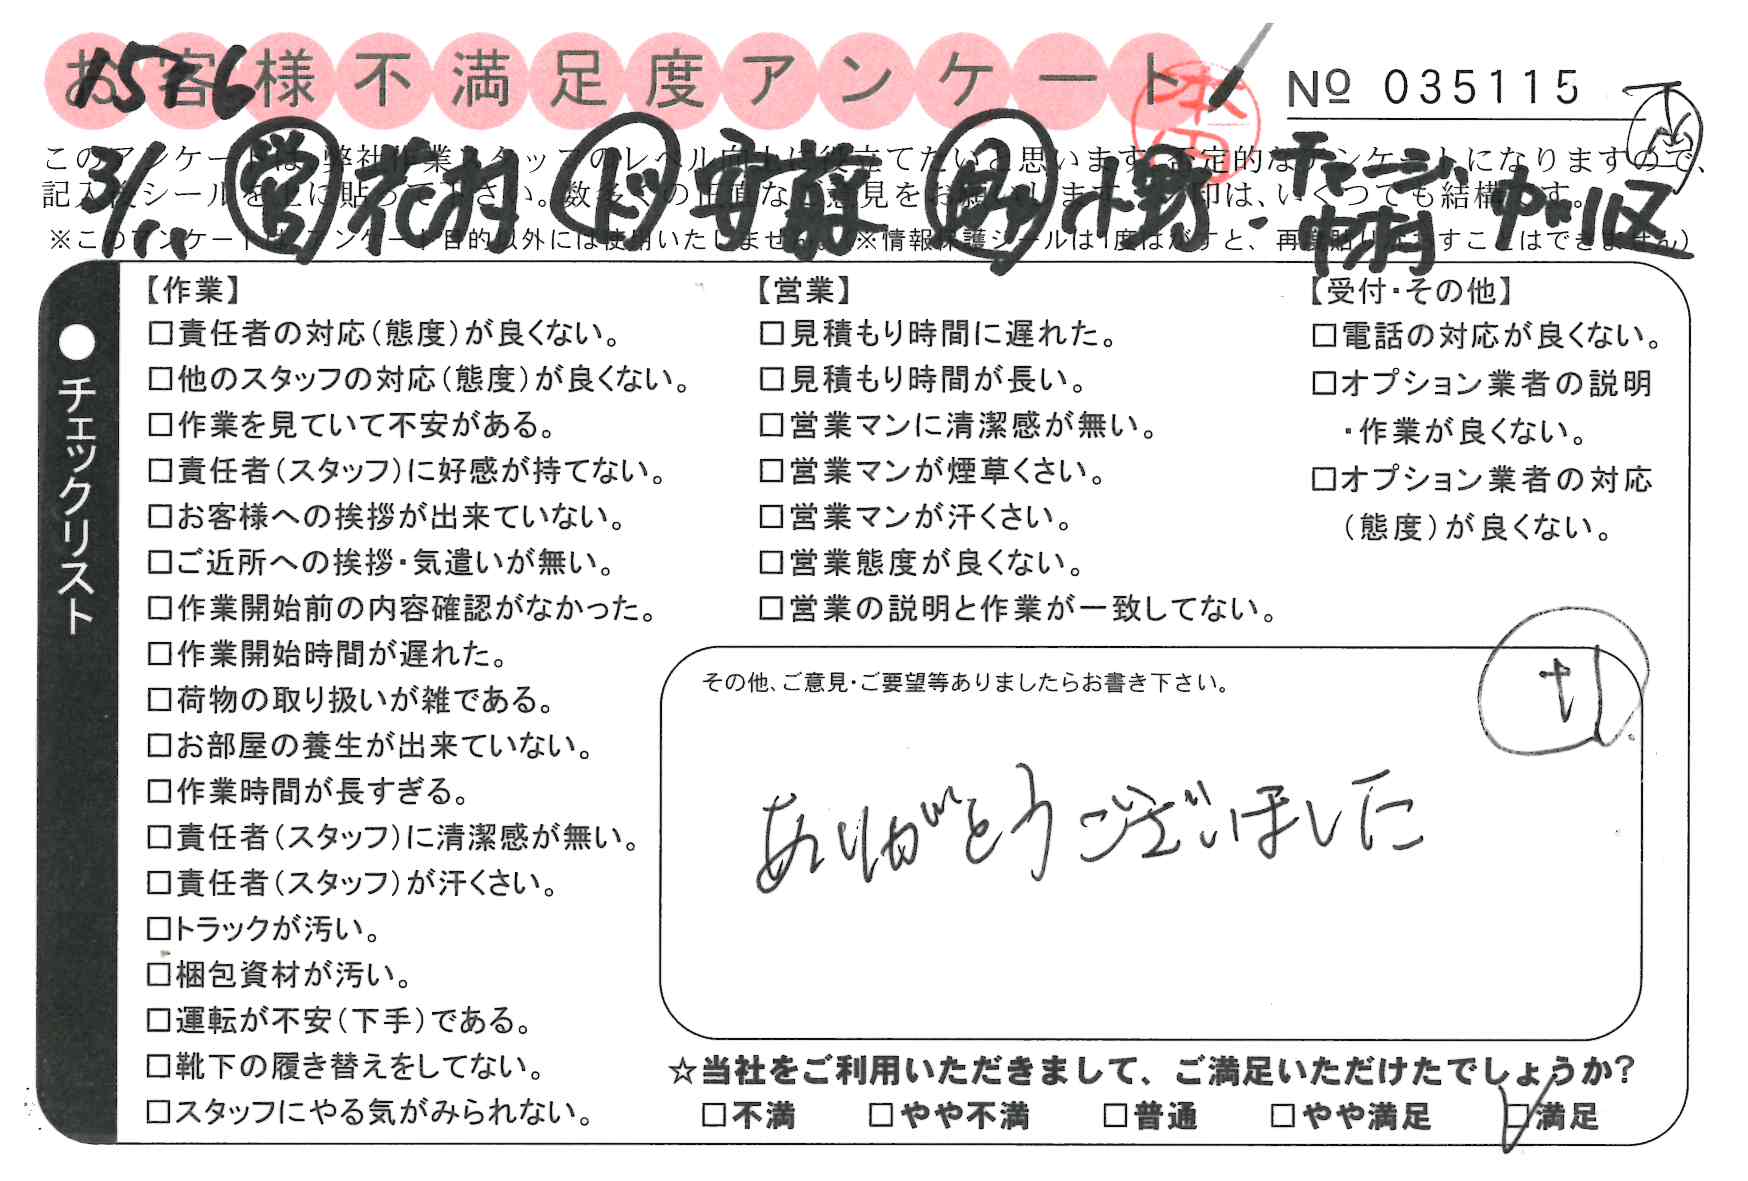 お客様不満足度アンケート
1576
本田
№ 035115
3/1 営 花村 ド 安藤 助 小野 チャージ 中村 中川区
このアンケートは、弊社作業スタッフのレベル向上に役立てたいと思います。否定的なアンケートになりますので、
記入後シールを上に貼って下さい。数多くの正直なご意見をお願いします。✓印は、いくつでも結構です。
※このアンケートは、アンケート目的以外には使用いたしません。(※情報保護シールは1度はがすと、再度貼りなおすことはできません)
●チェックリスト
【作業】
□責任者の対応(態度)が良くない。
□他のスタッフの対応(態度)が良くない。
□作業を見ていて不安がある。
□責任者(スタッフ)に好感が持てない。
□お客様への挨拶が出来ていない。
□ご近所への挨拶・気遣いが無い。
□作業開始前の内容確認がなかった。
□作業開始時間が遅れた。
□荷物の取り扱いが雑である。
□お部屋の養生が出来ていない。
□作業時間が長すぎる。
□責任者(スタッフ)に清潔感が無い。
□責任者(スタッフ)が汗くさい。
□トラックが汚い。
□梱包資材が汚い。
□運転が不安(下手)である。
□靴下の履き替えをしてない。
□スタッフにやる気がみられない。
【営業】
□見積もり時間に遅れた。
□見積もり時間が長い。
□営業マンに清潔感が無い。
□営業マンが煙草くさい。
□営業マンが汗くさい。
□営業態度が良くない。
□営業の説明と作業が一致してない。
【受付・その他】
□電話の対応が良くない。
□オプション業者の説明
・作業が良くない。
□オプション業者の対応
(態度)が良くない。
その他、ご意見・ご要望等ありましたらお書き下さい。
ありがとうございました
☆当社をご利用いただきまして、ご満足いただけたでしょうか?
□不満 □やや不満 □普通 □やや満足 ☑満足